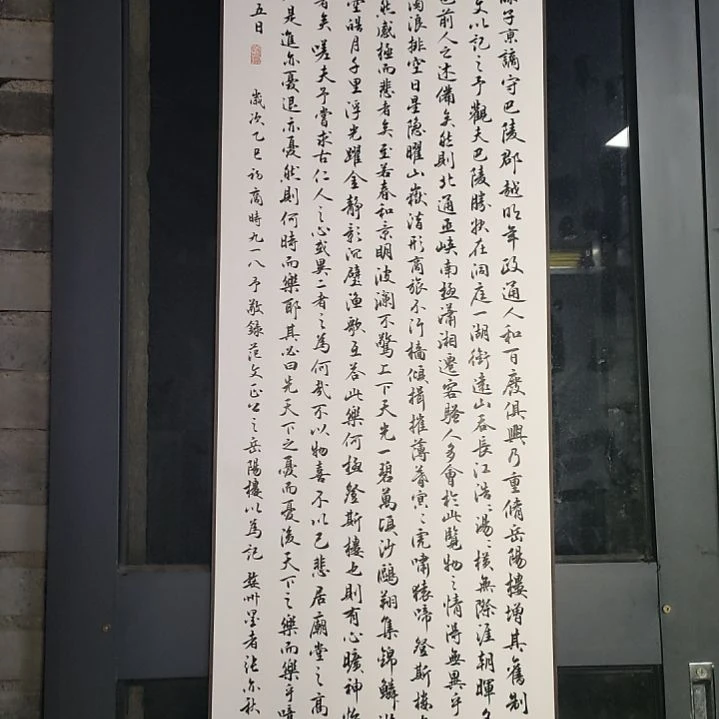 子京謫守巴陵郡越明年政通人和百廢俱興乃重脩岳陽樓增其舊制
文以記之予觀夫巴陵勝狀在洞庭一湖銜遠山吞長江浩〻湯〻橫無際涯朝暉夕
也前人之述備矣然則北通巫峽南極瀟湘遷客騷人多會於此覽物之情得無異乎
濁浪排空日星隱曜山嶽潛形商旅不行檣傾楫摧薄暮冥〻虎嘯猿啼登斯樓也
然感極而悲者矣至若春和景明波瀾不驚上下天光一碧萬頃沙鷗翔集錦鱗游
空皓月千里浮光躍金靜影沉璧漁歌互答此樂何極登斯樓也則有心曠神怡
者矣嗟夫予嘗求古仁人之心或異二者之為何哉不以物喜不以己悲居廟堂之高
是進亦憂退亦憂然則何時而樂耶其必曰先天下之憂而憂後天下之樂而樂乎噫
五日
歲次乙巳初商時九一八予敬錄范文正公之岳陽樓以為記 婺州墨者張亦秋